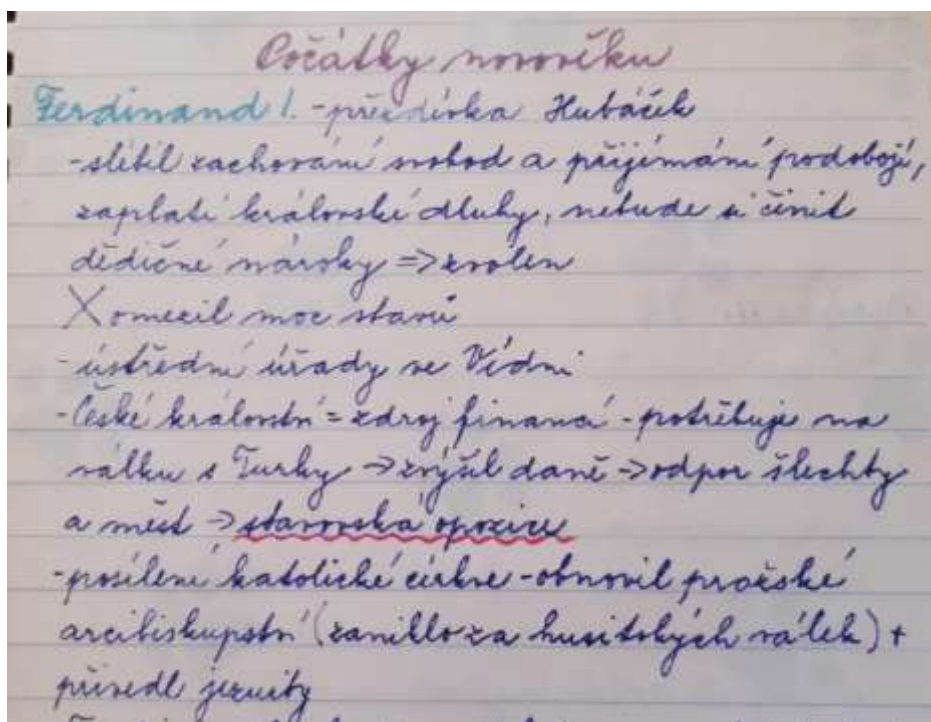 Počátky novověku
Ferdinand I. - přezdívka Hubáček
- slíbil zachování svobod a přijímání podobojí,
zaplatí královské dluhy, nebude si činit
dědičné nároky => zvolen
X omezil moc stavů
- ústřední úřady ve Vídni
- České království = zdroj financí - potřebuje na
válku s Turky -> zvýšil daně -> odpor šlechty
a měst -> stavovská opozice
- posílení katolické církve - obnovil pražské
arcibiskupství (zaniklo za husitských válek) +
přivedl jezuity